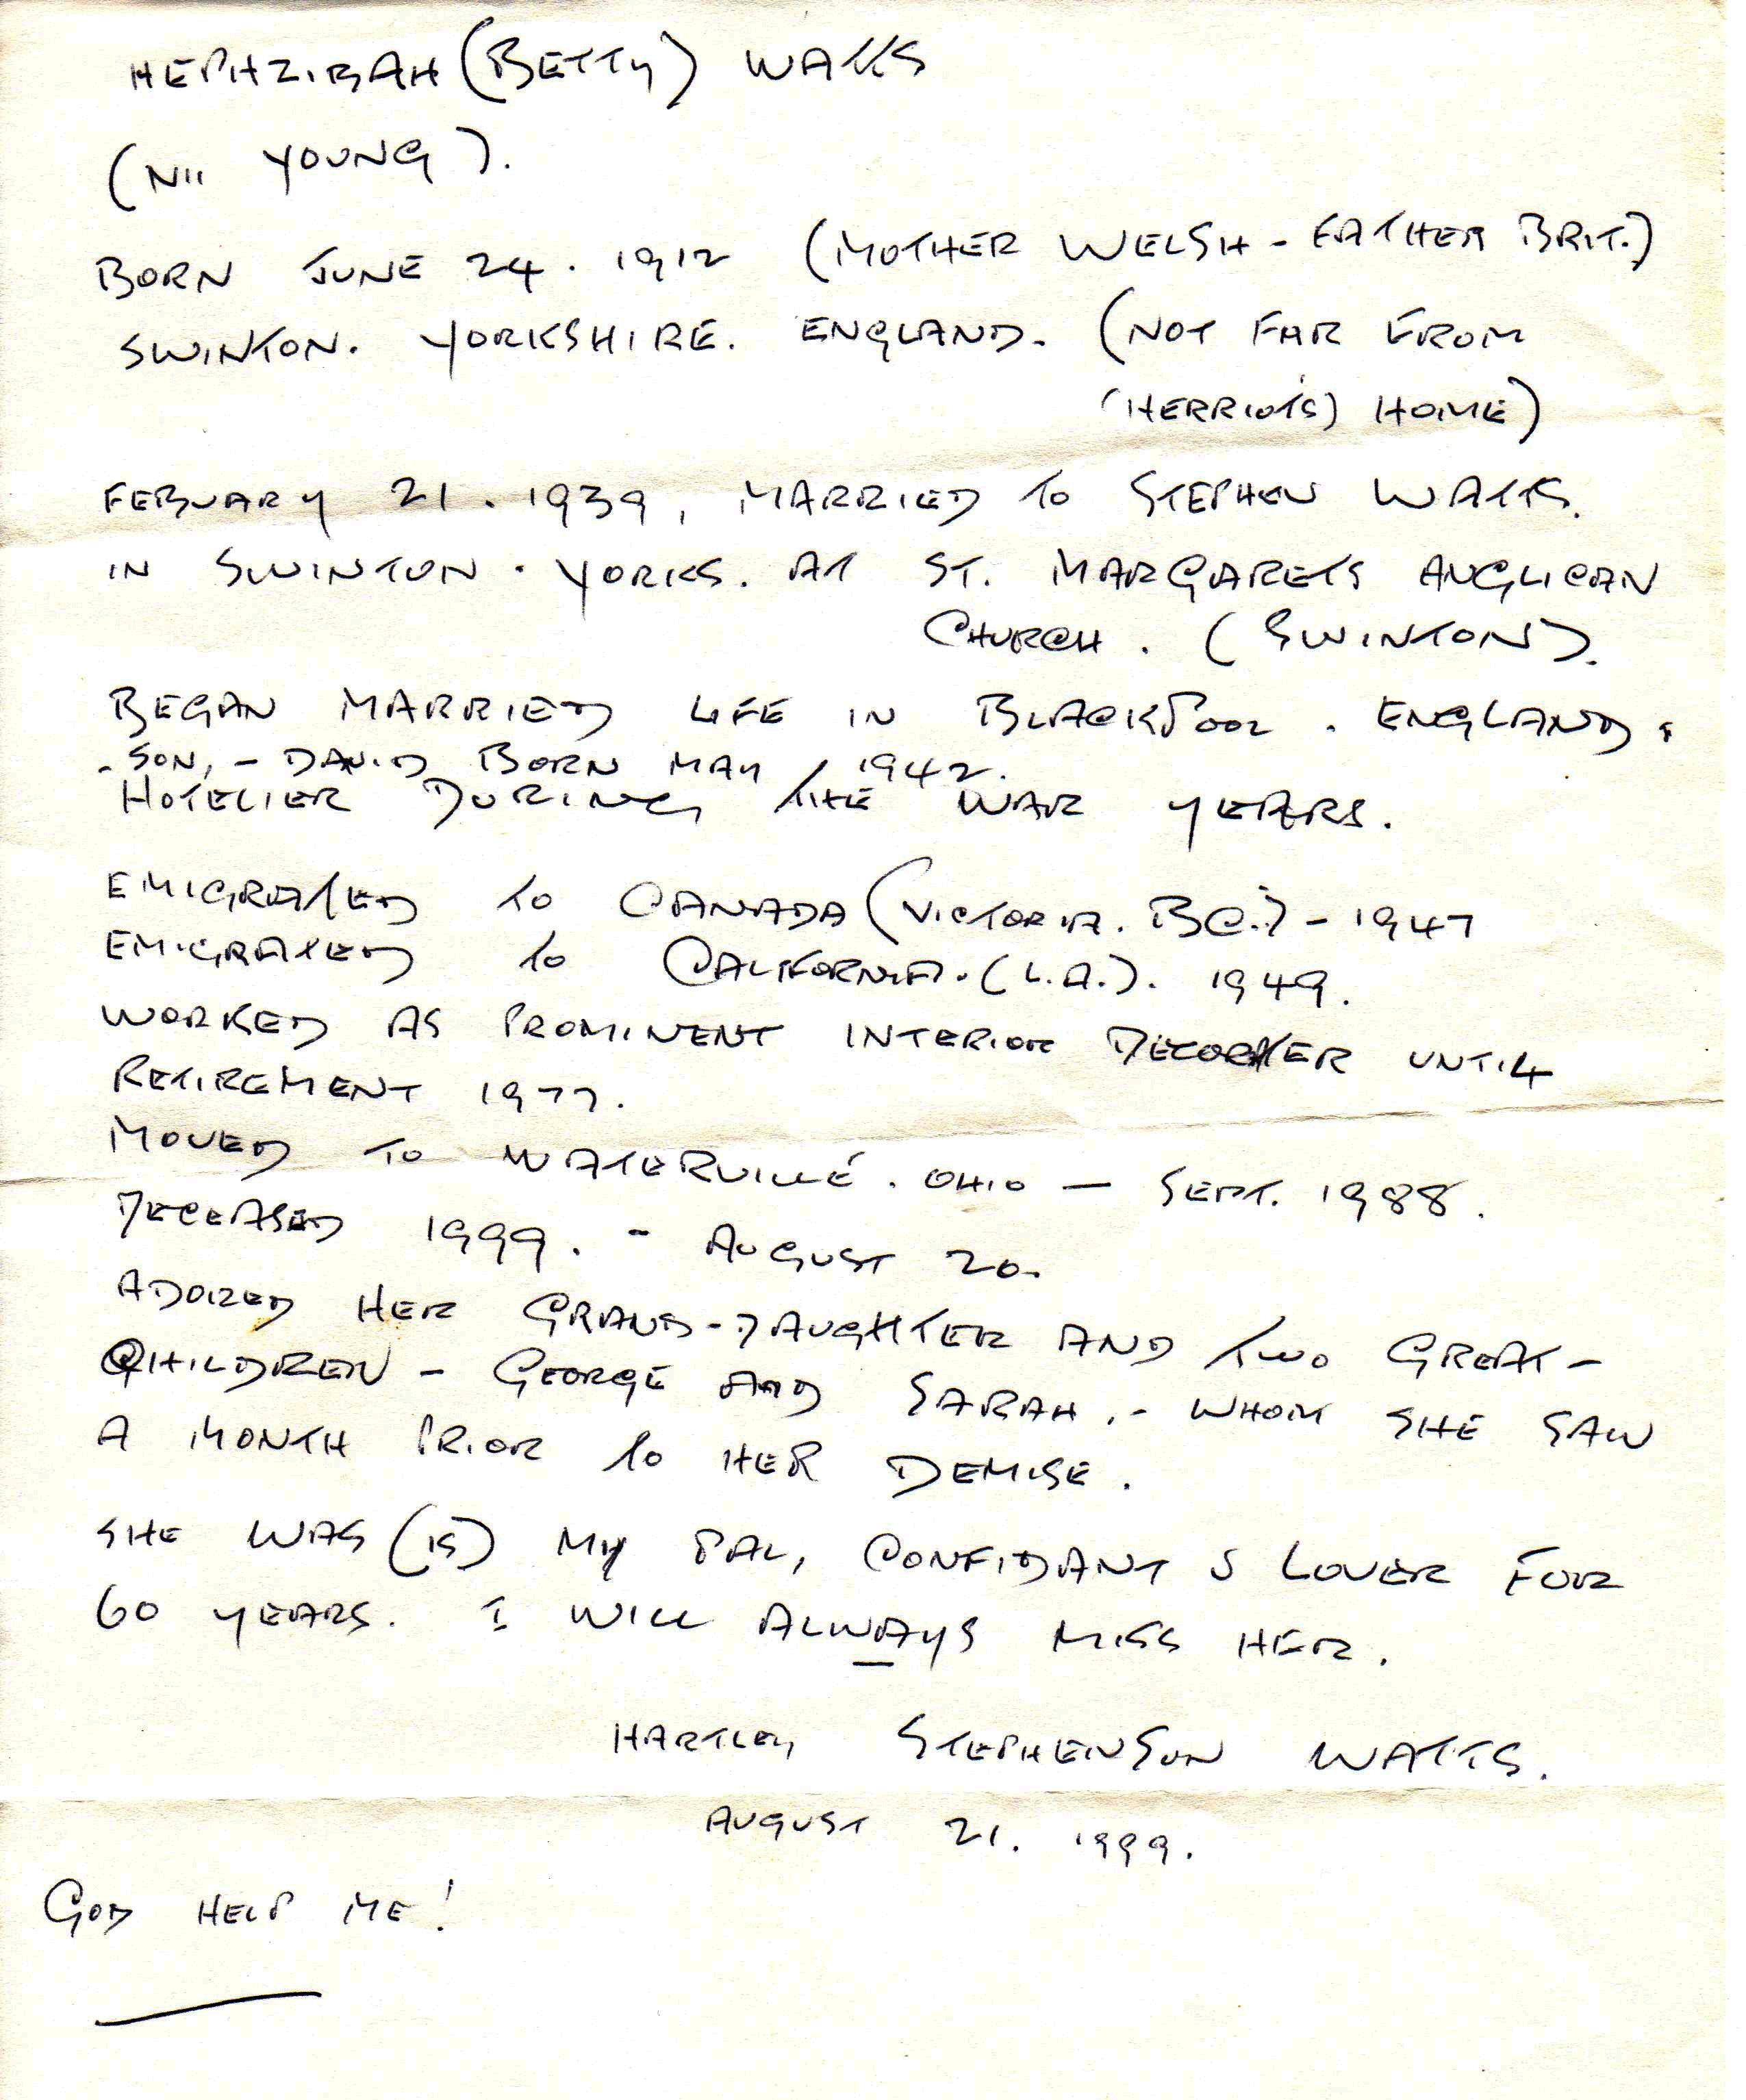 HEPHZIBAH (BETTY) WATTS
(NII YOUNG).
BORN JUNE 24. 1912 (MOTHER WELSH - FATHER BRIT.)
SWINTON. YORKSHIRE. ENGLAND. (NOT FAR FROM
(HERRIOT'S) HOME)
FEBUARY 21. 1939, MARRIED TO STEPHEN WATTS.
IN SWINTON. YORKS. AT ST. MARGARETS ANGLICAN
CHURCH. (SWINTON).
BEGAN MARRIED LIFE IN BLACKPOOL. ENGLAND.
- SON, - DAVID BORN MAY 1942.
HOTELIER DURING THE WAR YEARS.
EMIGRATED TO CANADA (VICTORIA. BC.) - 1947
EMIGRATED TO CALIFORNIA. (L.A.). 1949.
WORKED AS PROMINENT INTERIOR DECORATER UNTIL
RETIREMENT 1977.
MOVED TO WATERVILLE. OHIO — SEPT. 1988.
DECEASED 1999. - AUGUST 20.
ADORED HER GRAND-DAUGHTER AND TWO GREAT-
CHILDREN - GEORGE AND SARAH, - WHOM SHE SAW
A MONTH PRIOR TO HER DEMISE.
SHE WAS (IS) MY PAL, CONFIDANT & LOVER FOR
60 YEARS. I WILL ALWAYS MISS HER.
HARTLEY STEPHENSON WATTS.
AUGUST 21. 1999.
GOD HELP ME!